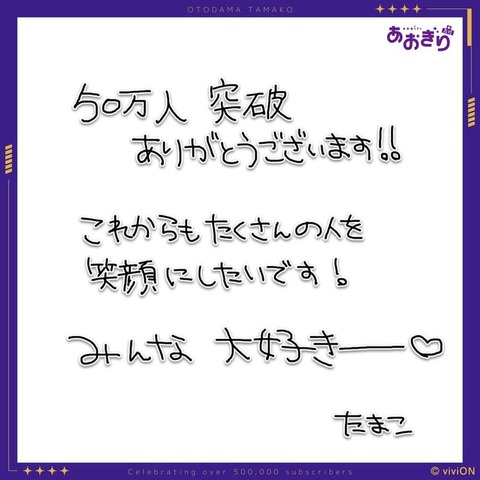 OTODAMA TAMAKO
aogiri
あおぎり
50万人 突破
ありがとうございます!!
これからもたくさんの人を
笑顔にしたいです!
みんな 大好きー♡
たまこ
Celebrating over 500,000 subscribers
© viviON